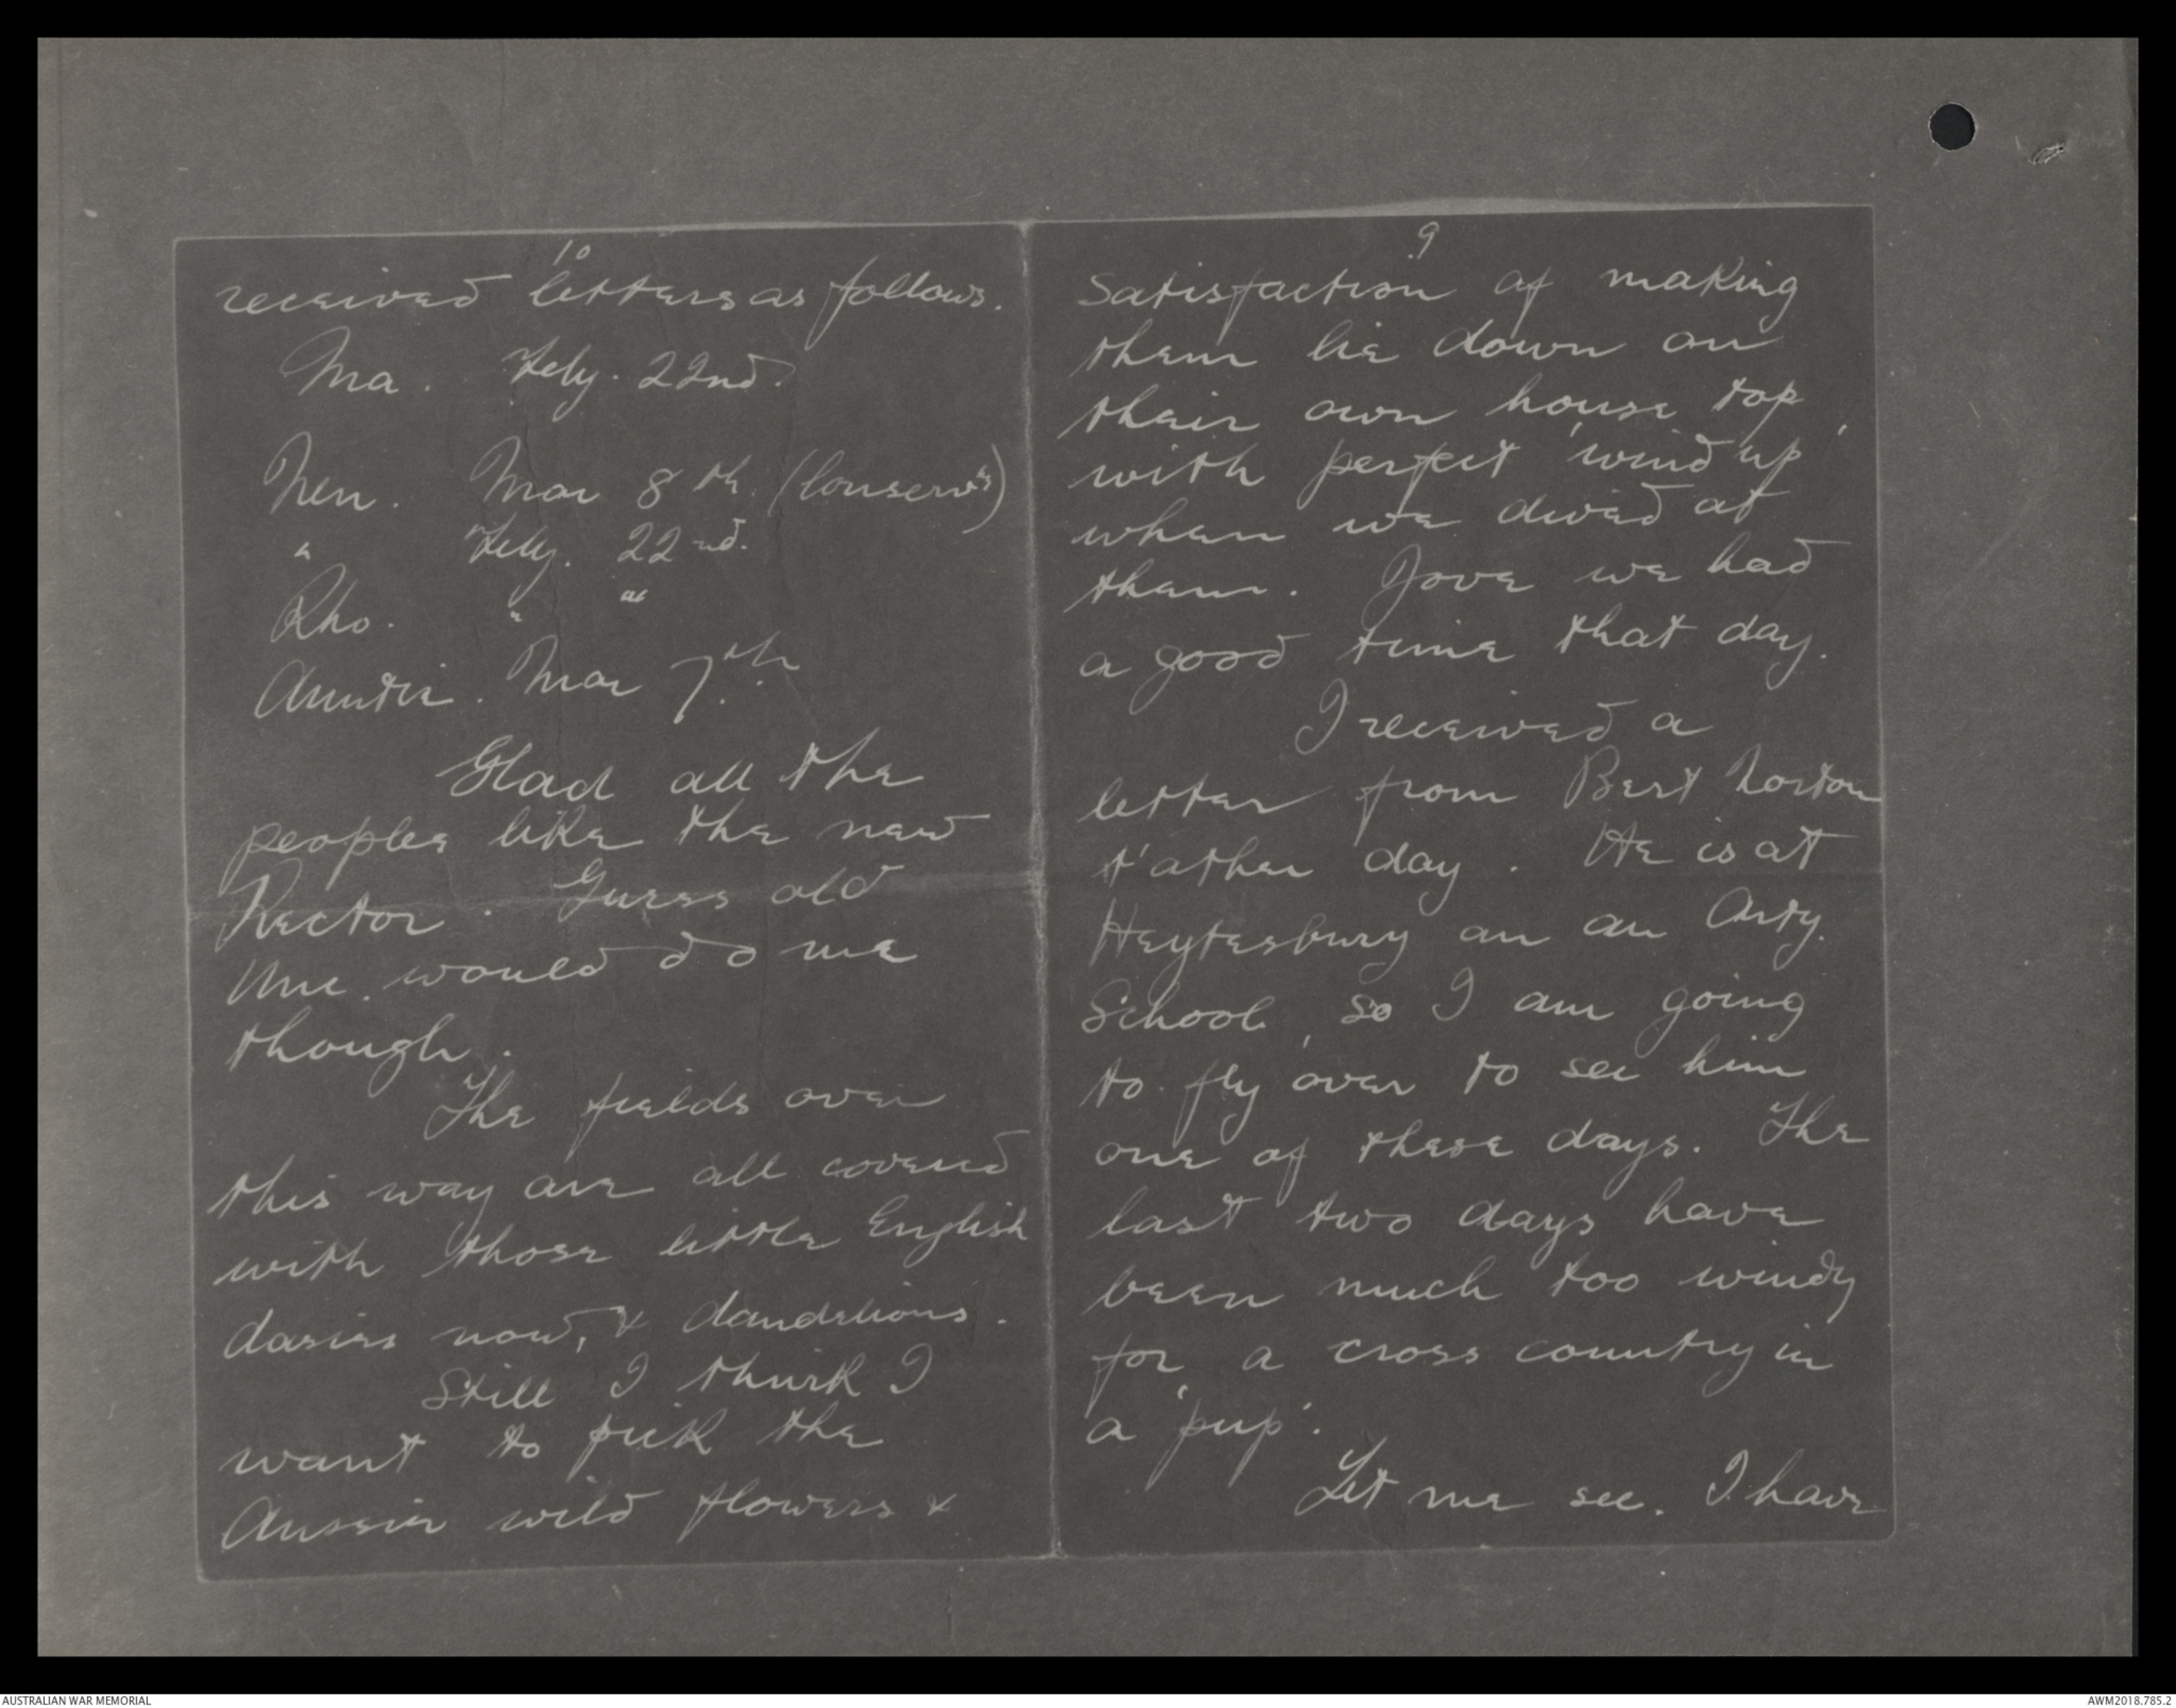 10
received letters as follows.
Ma. Feby. 22nd.
Nen. Mar 8th. (Conserv's)
" Feby. 22nd.
Rho. " "
Auntie. Mar 7th
Glad all the
peoples like the new
Rector. Guess old
Unc. would do me
though.
The fields over
this way are all covered
with those little English
dasies now, & dandelions.
Still I think I
want to pick the
Aussie wild flowers &
9
satisfaction of making
them lie down on
their own house top,
with perfect 'wind up'
when we dived at
them. Jove we had
a good time that day.
I received a
letter from Bert Norton
t'other day. He is at
Heytesbury on an Arty.
School, so I am going
to fly over to see him
one of these days. The
last two days have
been much too windy
for a cross country in
a 'pup'.
Let me see. I have
AUSTRALIAN WAR MEMORIAL
AWM2018.785.2